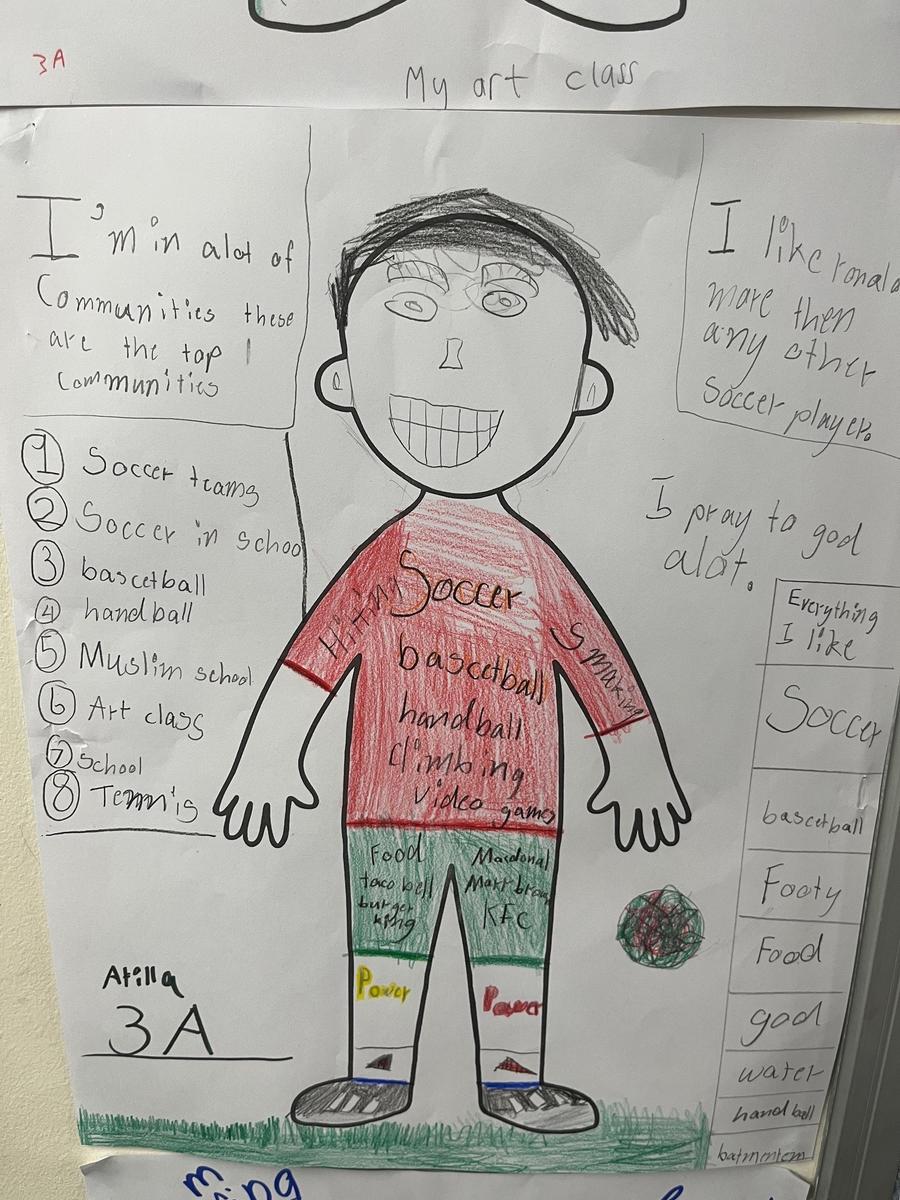 3A
My art class
I'm in alot of
Communities these
are the top
Communities
I like ronald
more then
any other
soccer player.
1 Soccer teams
2 Soccer in school
3 bascetball
4 handball
5 Muslim school
6 Art class
7 School
8 Tennis
I pray to god
alot.
Hiting
Soccer
Smaking
bascetball
handball
climbing
video games
Food
taco bell
burger
king
Macdonal
KFC
Power
Power
Atilla
3A
Everything
I like
Soccer
bascetball
Footy
Food
god
water
handball
batmentem